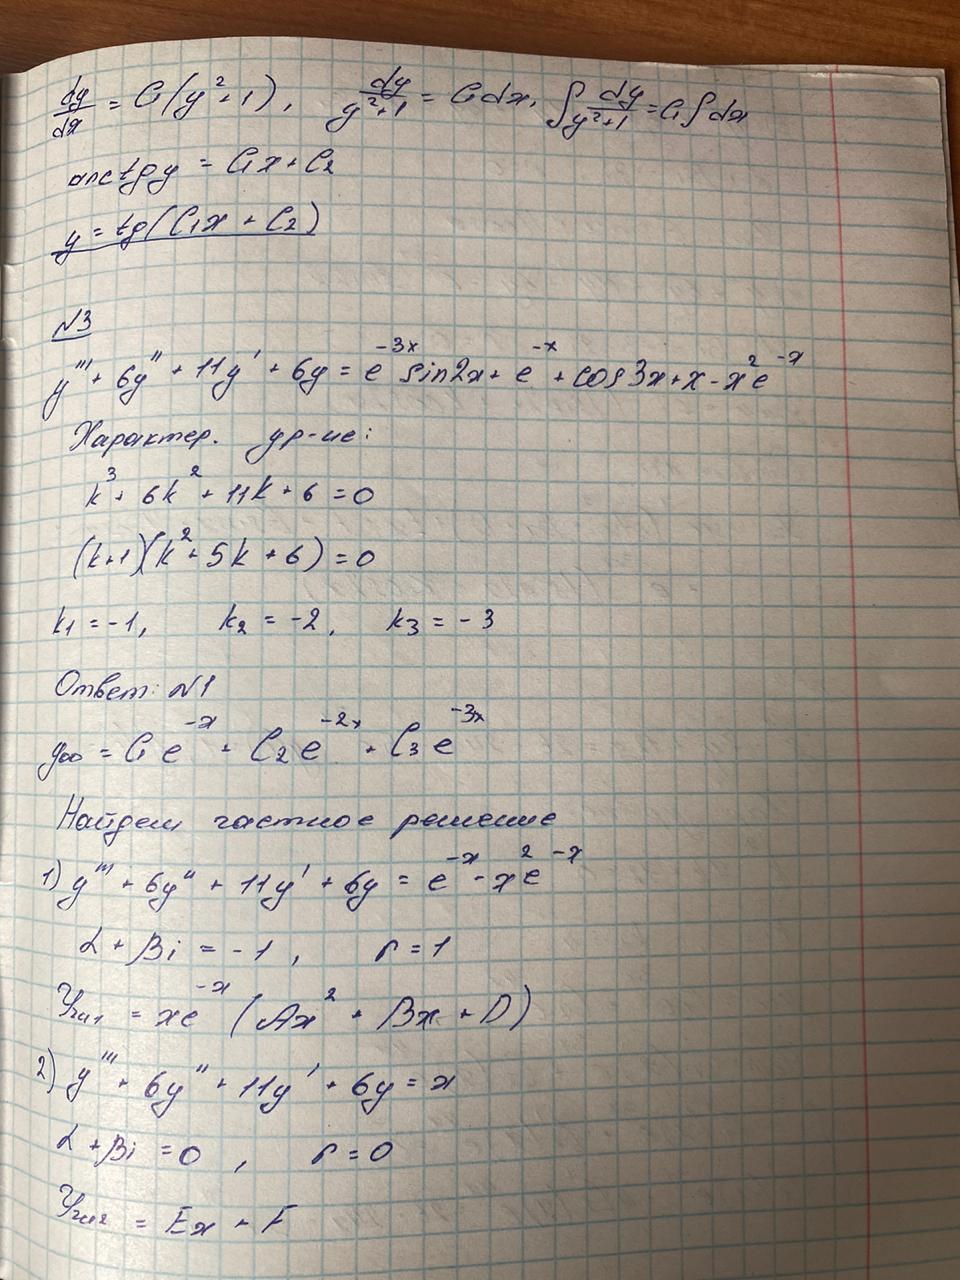 dy/dx = C₁(y²+1), dy/(y²+1) = C₁dx, ∫dy/(y²+1) = C₁∫dx
arctgy = C₁x + C₂
y = tg(C₁x + C₂)
№3
y''' + 6y'' + 11y' + 6y = e⁻³ˣ sin2x + e⁻ˣ + cos3x + x - x²e⁻ˣ
Характер. ур-ие:
k³ + 6k² + 11k + 6 = 0
(k+1)(k² + 5k + 6) = 0
k₁ = -1, k₂ = -2, k₃ = -3
Ответ: №1
yₒₒ = C₁e⁻ˣ + C₂e⁻²ˣ + C₃e⁻³ˣ
Найдем частное решение
1) y''' + 6y'' + 11y' + 6y = e⁻ˣ - x²e⁻ˣ
α + βi = -1, r = 1
Yчн₁ = xe⁻ˣ(Ax² + Bx + D)
2) y''' + 6y'' + 11y' + 6y = x
α + βi = 0, r = 0
Yчн₂ = Ex + F